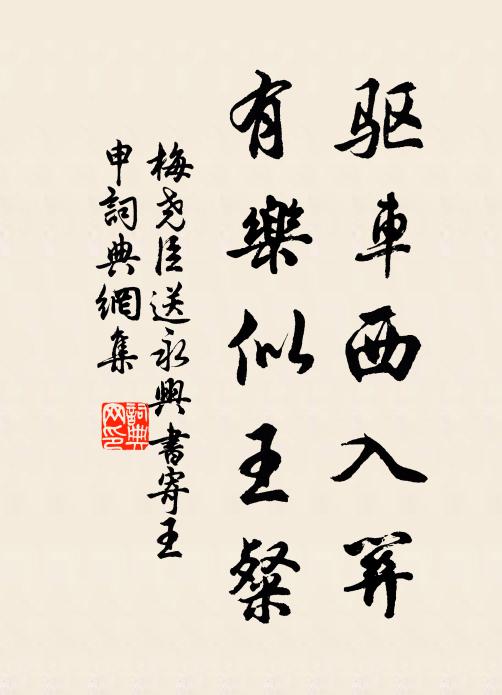 驱車西入關
有樂似王粲
梅尧臣送永興書寄王
申詞典網集
詞典网印